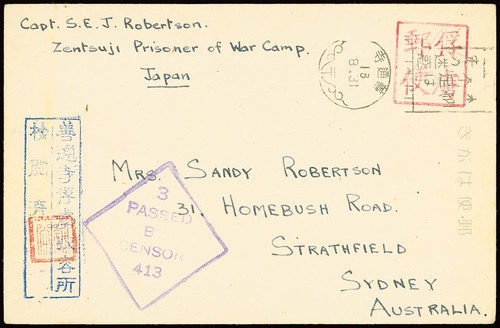 Capt. S.E.J. Robertson.
Zentsuji Prisoner of War Camp.
Japan
俘虜
郵便
善通寺
18
8.31
善通寺俘虜収容所
検閲済
Mrs. Sandy Robertson
31. Homebush Road.
Strathfield
Sydney
Australia.
3
PASSED
B
CENSOR
413